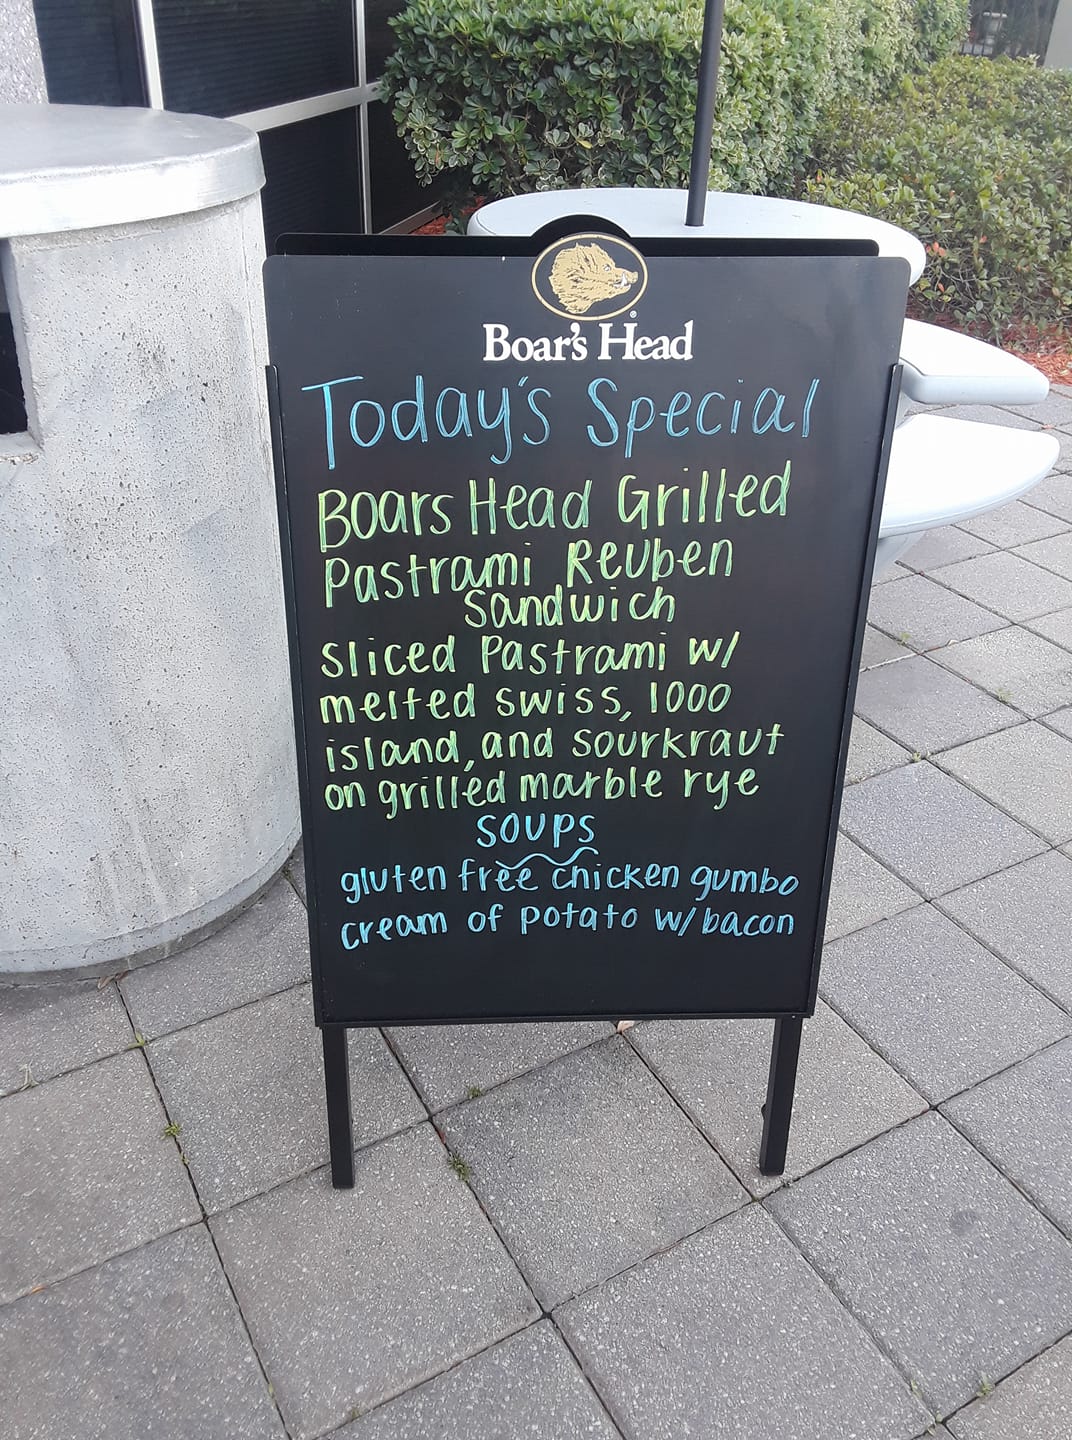 Boar's Head
Today's Special
Boars Head Grilled
Pastrami Reuben
Sandwich
Sliced Pastrami w/
melted swiss, 1000
island, and sourkraut
on grilled marble rye
soups
gluten free chicken gumbo
cream of potato w/ bacon